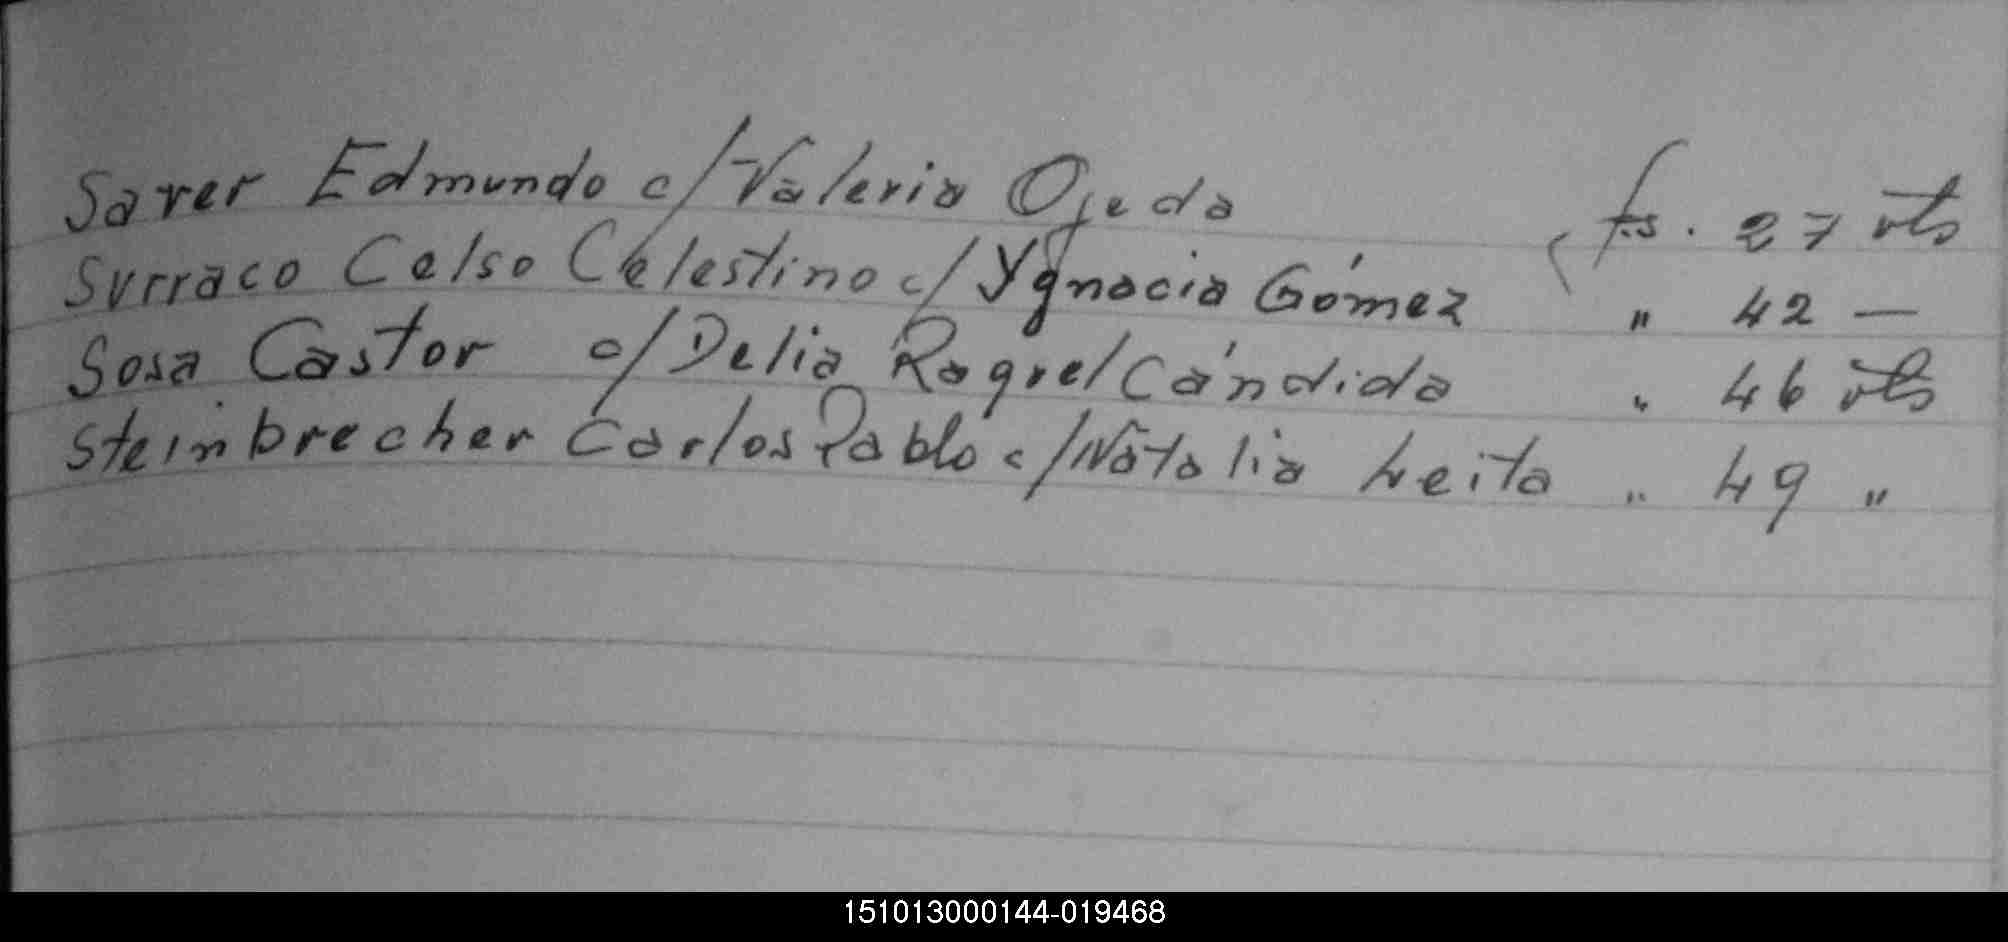 Saver Edmundo c/ Valeria Ojeda fs. 27 vto
Surraco Celso Celestino c/ Ygnacia Gómez " 42 —
Sosa Castor c/ Delia Raquel Cándida " 46 vto
Steinbrecher Carlos Pablo c/ Natalia Leita " 49 "
151013000144-019468